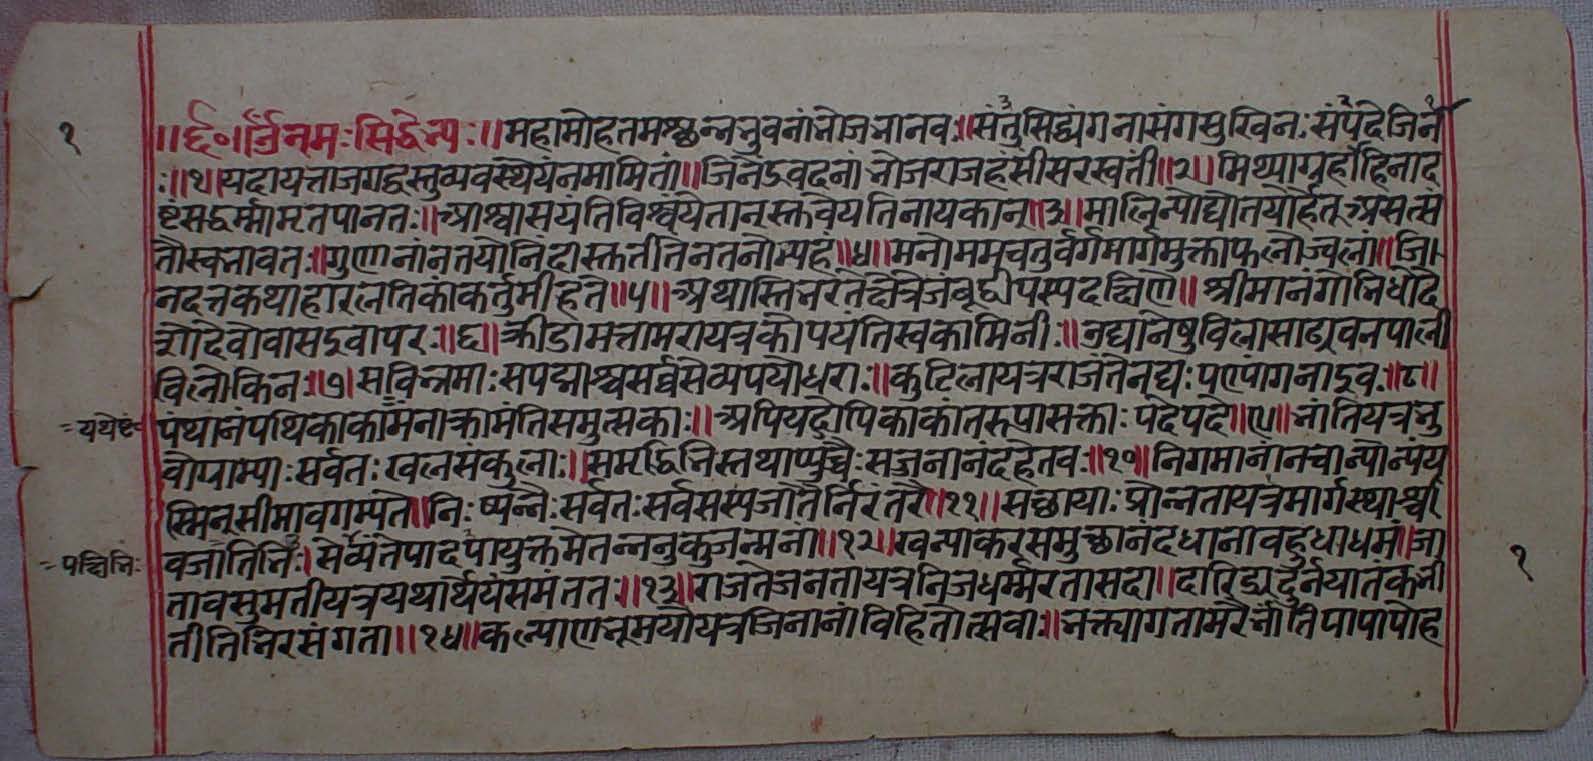 १
॥र्द०॥ र्ॐनमःसिद्धेभ्यः॥महामोहतमश्छन्नभुवनांभोजभानवः॥संतुसिद्ध्यंगनासंगसुखिनःसंपदेजिने
ः॥१॥यदायत्ताजगद्वस्तुव्यवस्थेयंनमामितां॥जिनेंद्रवदनांभोजराजहंसीसरस्वती॥२॥मिथ्याग्रहाहिनाद
ष्टंसद्धर्म्मामृतपानतः॥आश्वासयंतिविश्वंयेतान्स्तुवेयतिनायकान्॥३॥मालिन्योद्योतयोर्हेतूअसत्सं
तौस्वभावतः॥गुणानांनतयोर्निंदास्तुतीतेनतनोम्यहं॥४॥मनोममचतुर्वर्गमार्गमुक्ताफलोज्वलां॥जि
नदत्तकथाहारलतिकांकर्तुमीहते॥५॥अथास्तिभरतेक्षेत्रेजंबूद्वीपस्यदक्षिणे॥श्रीमानंगाभिधोदे
शोदेवावासइवापरः॥६॥क्रीडामत्तामरायत्रकोपयंतिस्वकामिनीः॥उद्यानेषुविलासाढ्यवनपाली
विलोकिनः॥७॥सविभ्रमाःसपद्माश्चसर्व्वसेव्यपयोधराः॥कुटिलायत्रराजंतेनद्यःपण्यांगनाइव॥८॥
=यथेष्टं= पंथानंपथिकाकामंनाक्रामंतिसमुत्सकाः॥अपियद्गोपिकाकांतरूपासक्ताःपदेपदे॥९॥भांतियत्रभु
वोग्राम्याःसर्वतःखलसंकुलाः॥समृद्धिभिस्तथाप्युच्चैःसज्जनानंदहेतवः॥१०॥निगमानांनचान्योन्यंय
स्मिन्सीमावगम्यते॥निःष्पन्नैःसर्वतःसर्वसस्यजातैर्निरंतरै॥११॥सच्छायाःप्रोन्नतायत्रमार्गस्थाश्चा
=पक्षिभिः वजातिभिः।सेव्यंतेपादपायुक्तमेतन्ननुकुजन्मनां॥१२॥खन्याकरसमुच्छानंदधानावहुधाधमं॥जा
१
तावसुमतीयत्रयथार्थेयंसमंततः॥१३॥राजतेजनतायत्रनिजधर्म्मरतासदा॥दारिद्र्यदुर्नयातंकभी
तीतिभिरसंगता॥१४॥कल्याणभूमयोयत्रजिनानांविहितोत्सवाः॥भक्त्यागतामरैर्भांतिपापापोह